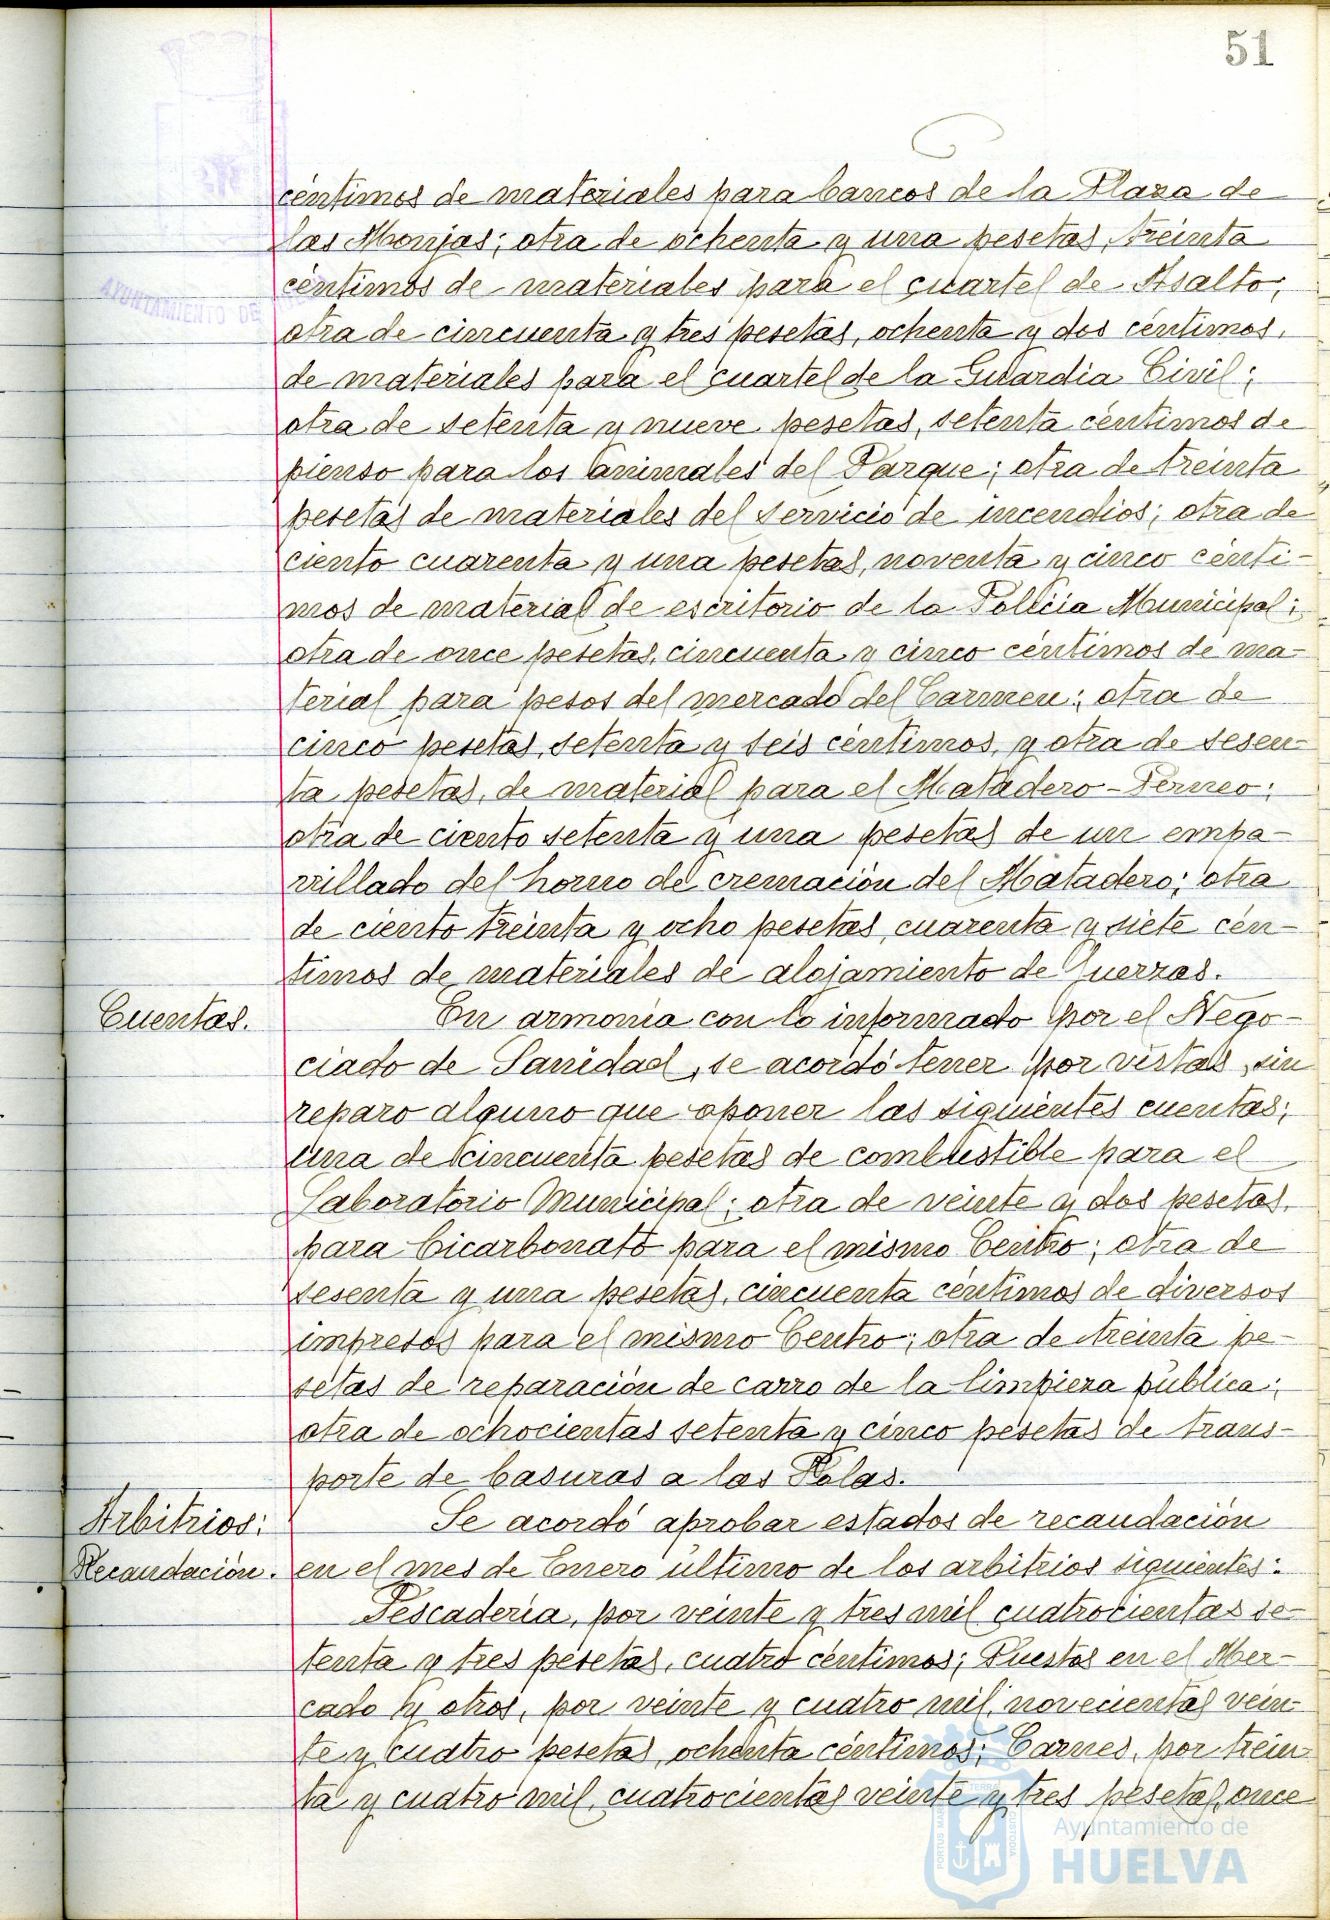 51
céntimos de materiales para bancos de la Plaza de
las Monjas; otra de ochenta y una pesetas, treinta
céntimos de materiales para el cuartel de Asalto;
otra de cincuenta y tres pesetas, ochenta y dos céntimos,
de materiales para el cuartel de la Guardia Civil;
otra de setenta y nueve pesetas, setenta céntimos de
pienso para los animales del Parque; otra de treinta
pesetas de materiales del servicio de incendios; otra de
ciento cuarenta y una pesetas, noventa y cinco cénti-
mos de material de escritorio de la Policía Municipal;
otra de once pesetas, cincuenta y cinco céntimos de ma-
terial para pesos del mercado del Carmen; otra de
cinco pesetas, setenta y seis céntimos, y otra de sesen-
ta pesetas, de material para el Matadero-Perneo;
otra de ciento setenta y una pesetas de un empa-
rrillado del horno de cremación del Matadero; otra
de ciento treinta y ocho pesetas, cuarenta y siete cén-
timos de materiales de alojamiento de Guerras.
Cuentas.
En armonía con lo informado por el Nego-
ciado de Sanidad, se acordó tener por vistas, sin
reparo alguno que oponer las siguientes cuentas;
una de cincuenta pesetas de combustible para el
Laboratorio Municipal; otra de veinte y dos pesetas,
para bicarbonato para el mismo Centro; otra de
sesenta y una pesetas, cincuenta céntimos de diversos
impresos para el mismo Centro; otra de treinta pe-
setas de reparación de carro de la limpieza pública;
otra de ochocientas setenta y cinco pesetas de trans-
porte de basuras a las Palas.
Arbitrios:
Recaudación.
Se acordó aprobar estados de recaudación
en el mes de Enero último de los arbitrios siguientes:
Pescadería, por veinte y tres mil cuatrocientas se-
tenta y tres pesetas, cuatro céntimos; Puestos en el Mer-
cado y otros, por veinte y cuatro mil, novecientas vein-
te y cuatro pesetas, ochenta céntimos; Carnes, por trein-
ta y cuatro mil, cuatrocientas veinte y tres pesetas, once
AYUNTAMIENTO DE
PORTUS MARIS ET TERRAE CUSTODIA
Ayuntamiento de
HUELVA